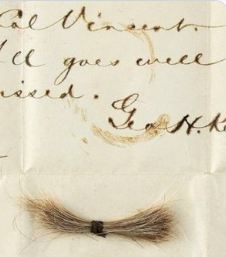 Col Vincent.
goes well
issed.
Geo H. K